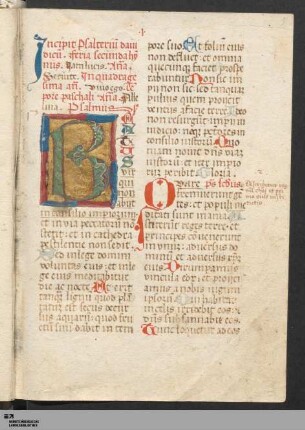 Incipit Psalterium daui
dicu. feria secunda hy
nus. Nam lucis. Aña.
Seruite. In quadrage
sima añ. Viuo ego. Te
pore paschali aña. Alle
luia. Psalmus.
B
EATVS
uir
qui
non
consilio impiorum
et in via peccatorum nō
stetit: et in cathedra
pestilentie non sedit.
Sed in lege domini
voluntas eius: et in le
ge eius meditabitur
die ac nocte. Et erit
tanq̃ lignum quod plā
tatum est secus decur
sus aquarum: quod fru
ctum suum dabit in tem
pore suo. Et folium eius
non defluet: et omnia
quecunque faciet prospe
rabuntur. Non sic im
pii non sic: sed tanquā
puluis quem proiicit
ventus a facie terre. Ideo
non resurgunt impii in
iudicio: neq̃ peccatores in
consilio iustorum. Quo
niam nouit dn̄s viam
iustorum: et iter impio
rum peribit. Gloria.
Quare ps̄ secūs.
fremuerunt gen
tes: et populi me
ditati sunt inania.
Astiterunt reges terre: et
principes cōuenerunt
in vnum: aduersus do
minum et aduersus xp̄m
eius. Dirumpamus
vincula eorum: et proiici
amus a nobis iugum
ipsorum. Qui habitat in
celis irridebit eos: et
dn̄s subsannabit eos.
Tunc loquetur ad eos